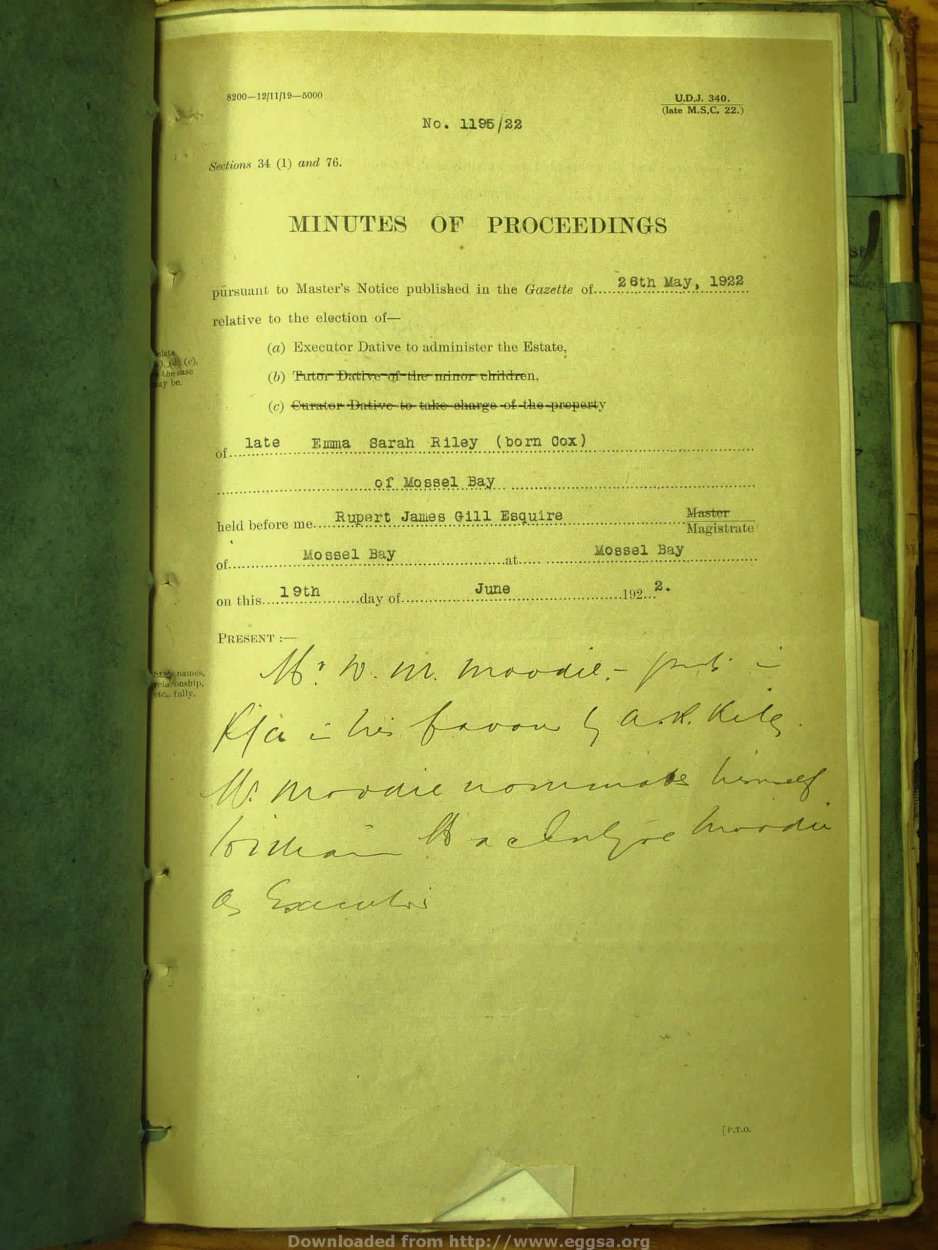 8200—12/11/19—5000
U.D.J. 340.
(late M.S.C. 22.)
No. 1195/22
Sections 34 (1) and 76.
MINUTES OF PROCEEDINGS
pursuant to Master's Notice published in the Gazette of.....26th May, 1922
relative to the election of—
(a) Executor Dative to administer the Estate,
(b) Tutor Dative of the minor children,
(c) Curator Dative to take charge of the property
of late Emma Sarah Riley (born Cox)
of Mossel Bay
held before me Rupert James Gill Esquire Master
Magistrate
of Mossel Bay at Mossel Bay
on this 19th day of June 1922.
PRESENT :—
State names,
relationship,
etc., fully.
Mr. W. M. Moodie - puts in
P/a in his favour by A.R. Riley.
Mr. Moodie nominates himself
William MacIntyre Moodie
as Executor
[P.T.O.
Downloaded from http://www.eggsa.org